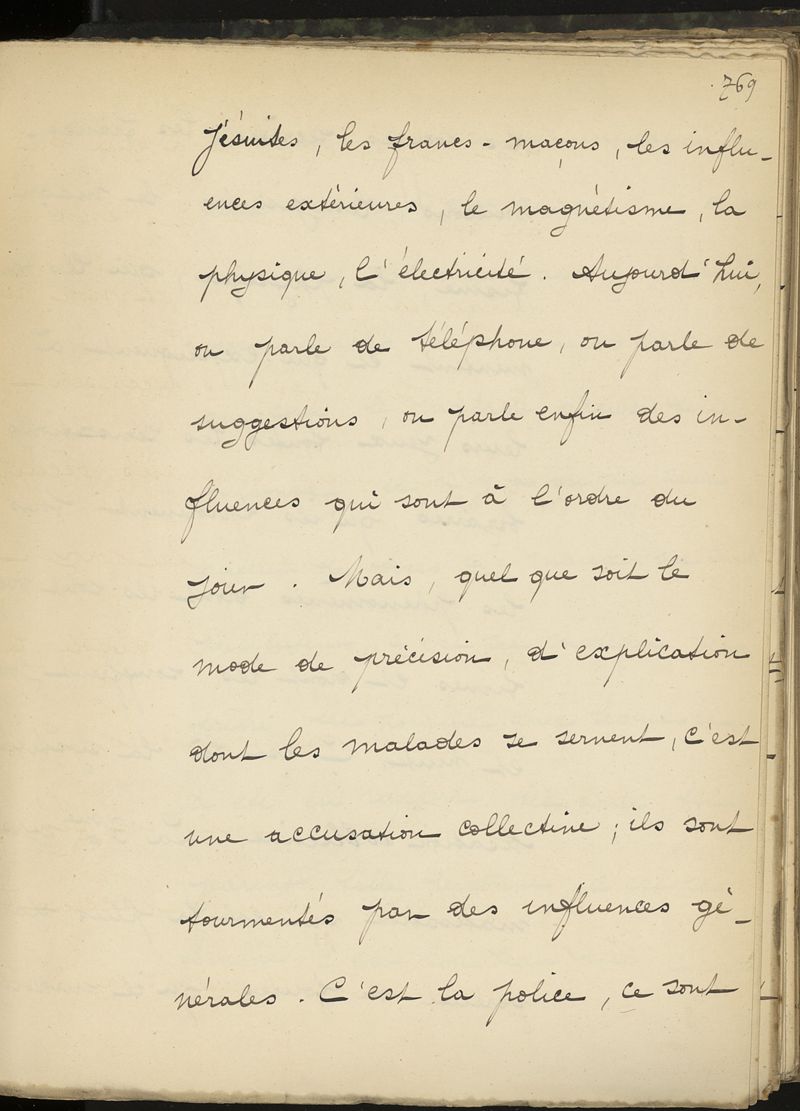 769
Jésuites, les francs-maçons, les influ-
ences extérieures, le magnétisme, la
physique, l'électricité. Aujourd'hui,
on parle de téléphone, on parle de
suggestions, on parle enfin des in-
fluences qui sont à l'ordre du
jour. Mais, quel que soit le
mode de précision, d'explication
dont les malades se servent, c'est
une accusation collective; ils sont
tourmentés par des influences gé-
nérales. C'est la police, ce sont